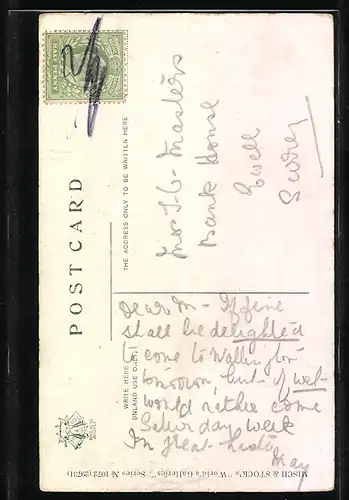 POST CARD
THE ADDRESS ONLY TO BE WRITTEN HERE
Mrs J. C. Masters
Bank House
Ewell
Surrey
WRITE HERE
(INLAND USE ONLY)
Dear M - If fine
shall be delighted
to come to Wallington
tomorrow, but - if wet -
would rather come
Saturday week
In great haste
May
MISCH & STOCK'S "World's Galleries" Series № 1072 (2973)